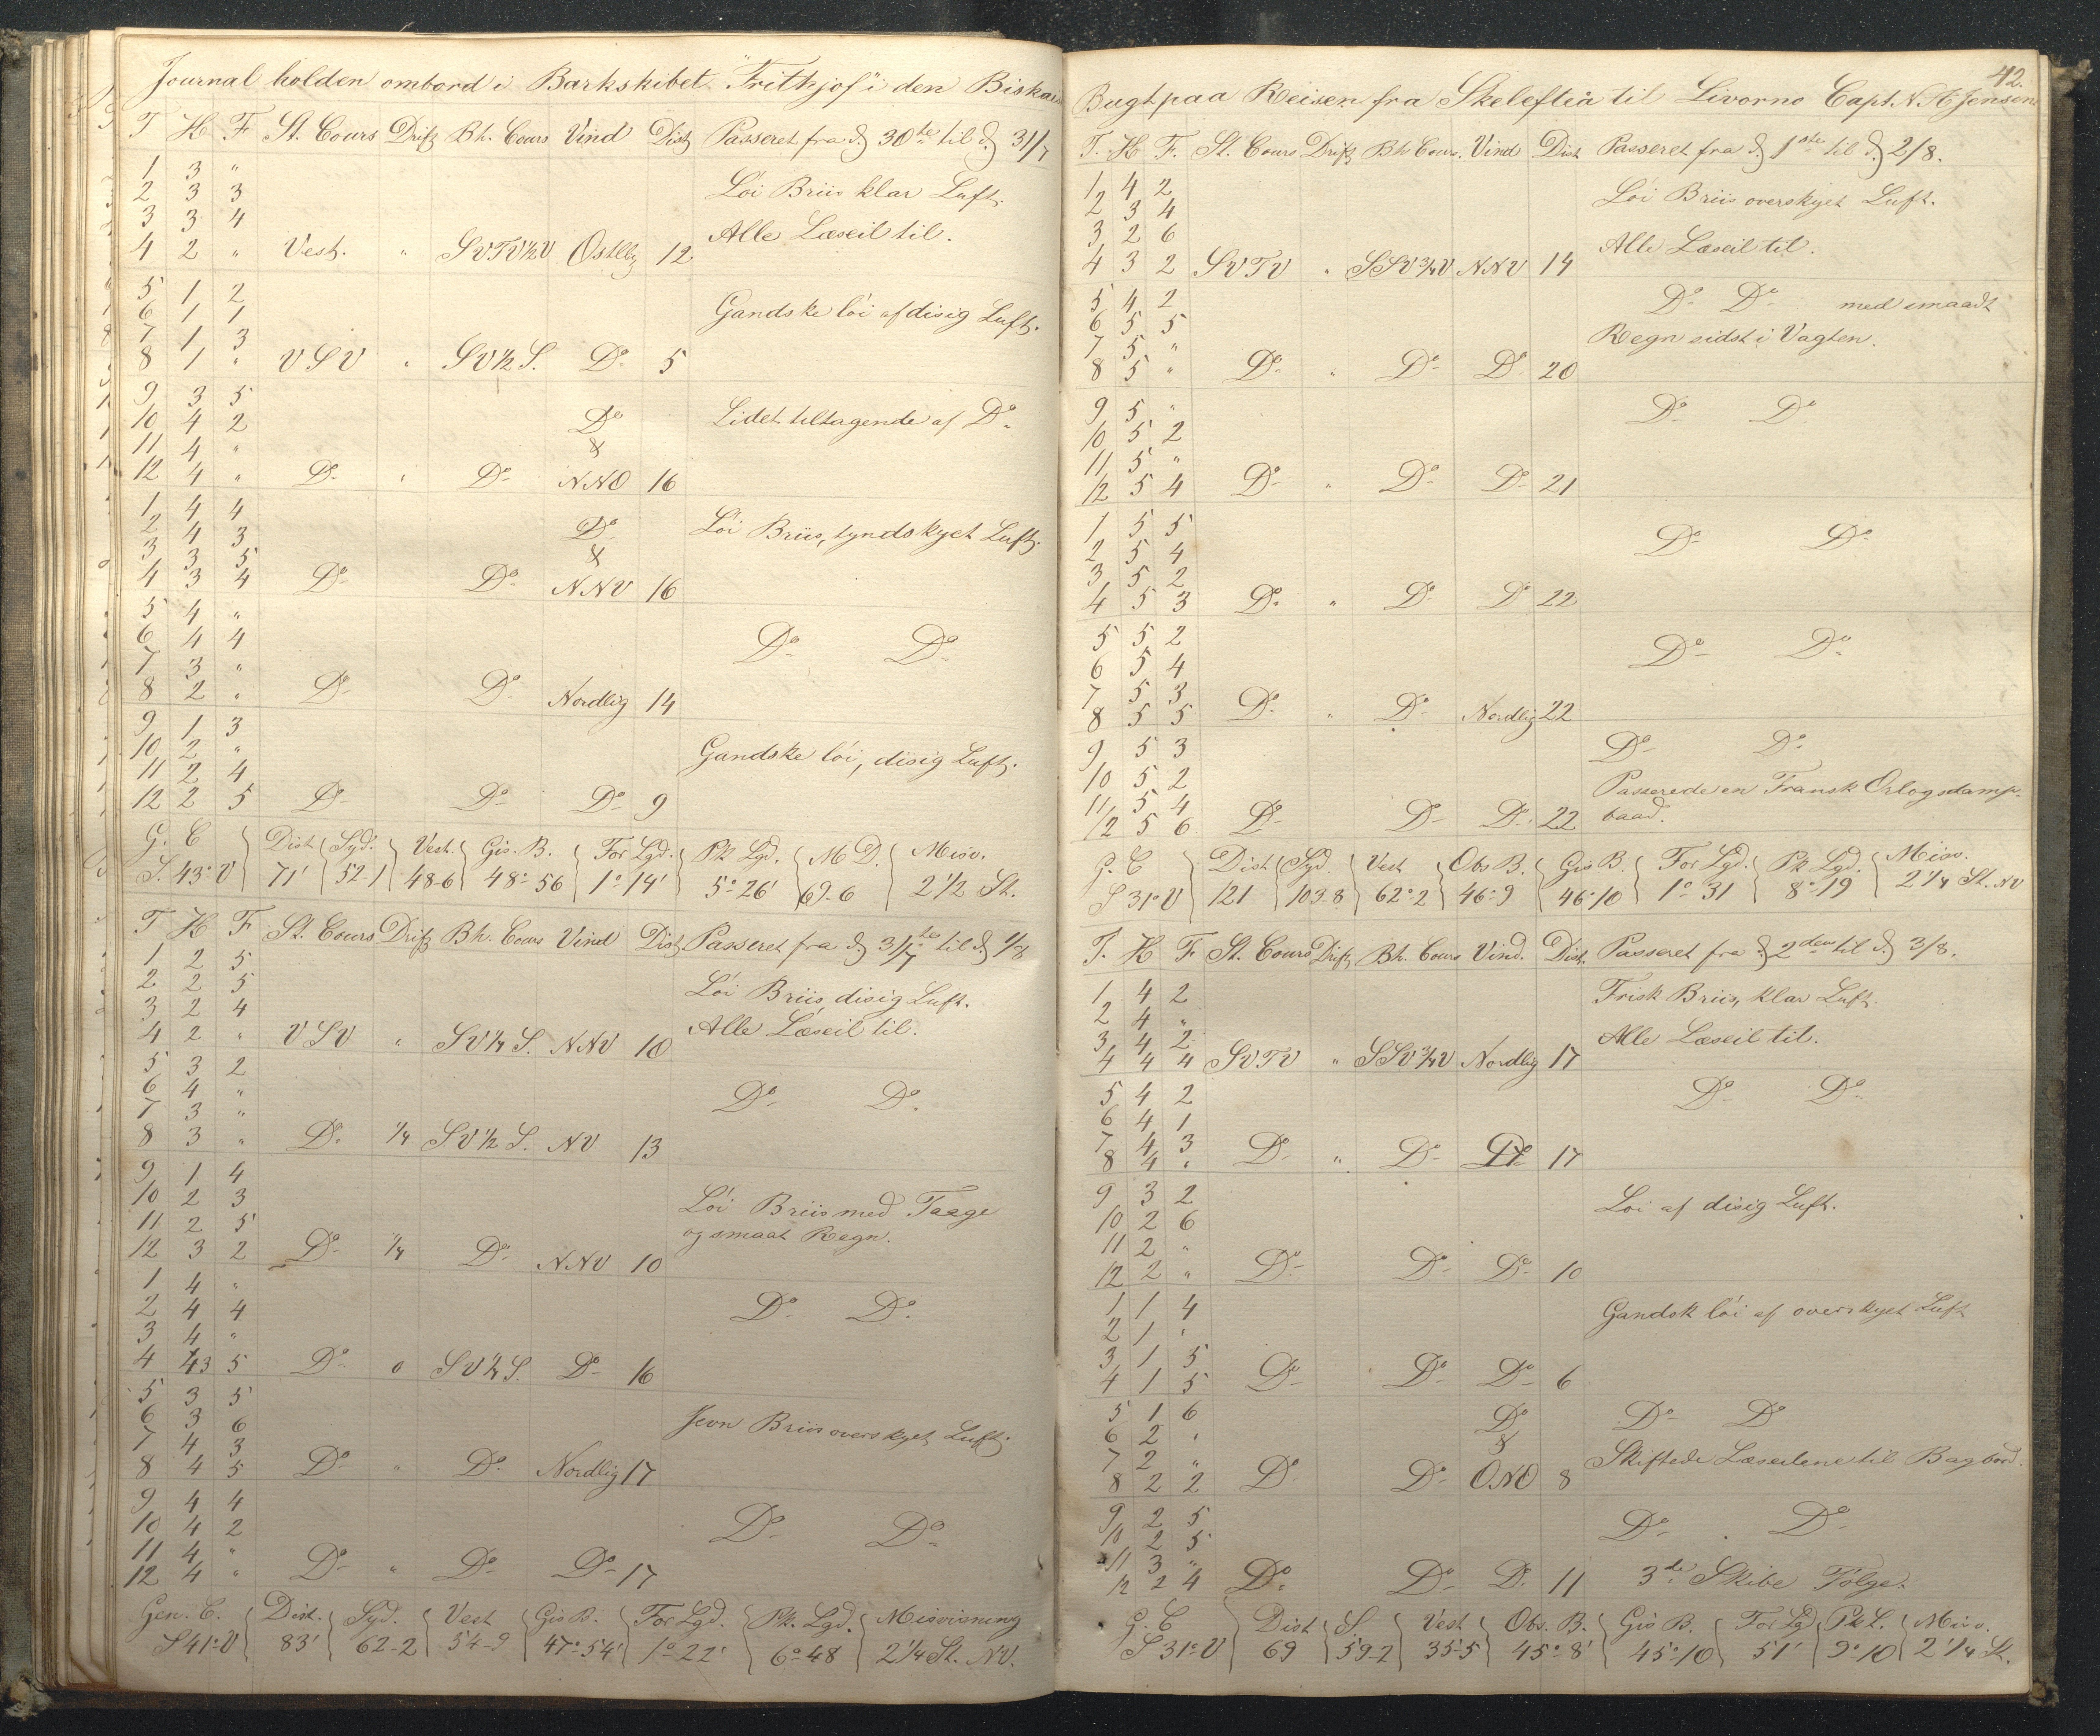 Journal holden ombord i Barkskibet "Frithjof" i den Biskai
T H F St. Cours Drift Bh. Cours Vind Dist Passeret fra d. 30te til d. 31/7
1 3 "
2 3 3 Løi Briis klar Luft.
3 3 4 Alle Læseil til.
4 2 " Vest. " SVTV½V Østlig 12
5 1 2
6 1 1 Gandske løi af disig Luft.
7 1 3
8 1 " VSV " SV½S. Do 5
9 3 5
10 4 2 Do Lidet tiltagende af Do
11 4 " &
12 4 " Do " Do NNO 16
1 4 4
2 4 3 Do Løi Briis, tyndskyet Luft.
3 3 5 &
4 3 4 Do Do NNV 16
5 4 "
6 4 4 Do Do
7 3 "
8 2 " Do Do Nordlig 14
9 1 3
10 2 " Gandske løi, disig Luft.
11 2 4
12 2 5 Do Do Do 9
G. C Dist Syd. Vest. Gis. B. For Lgd. Pk Lgd. M D. Misv.
S. 43° V 71' 52-1 48-6 48°56 1°14' 5°26' 69-6 2½ St.
T H F St. Cours Drift Bh. Cours Vind Dist Passeret fra d. 31/7te til d. 1/8
1 2 5
2 2 5 Løi Briis, disig Luft.
3 2 4 Alle Læseil til.
4 2 " VSV " SV¼S. NNV 10
5 3 2
6 4 " Do Do
7 3 "
8 3 " Do ¼ SV½S. NV 13
9 1 4
10 2 3 Løi Briis med Taage
11 2 5 og smaat Regn.
12 3 2 Do ¼ Do NNV 10
1 4 "
2 4 4 Do Do
3 4 "
4 43 5 Do 0 SV¼S. Do 16
5 3 5
6 3 6 Jevn Briis overskyet Luft.
7 4 3
8 4 5 Do " Do Nordlig 17
9 4 4
10 4 2 Do Do
11 4 "
12 4 " Do " Do Do 17
Gen. C. Dist. Syd. Vest Gis B. For Lgd. Pk. Lgd. Misvisning
S 41° V 83' 62-2 54-9 47°54' 1°22' 6°48 2¼ St. NV.
42.
Bugt paa Reisen fra Skelefteå til Livorno Capt. N A Jensen
T. H F. St. Cours Drift Bh Cour. Vind Dist Passeret fra d. 1ste til d. 2/8.
1 4 2 Løi Briis overskyet Luft.
2 3 4
3 2 6 Alle Læseil til.
4 3 2 SVTV " SSV¾V NNV 14
5 4 2 Do Do med smaadt
6 5 5 Regn sidst i Vagten.
7 5 "
8 5 " Do " Do Do 20
9 5 " Do Do
10 5 2
11 5 "
12 5 4 Do " Do Do 21
1 5 5
2 5 4 Do Do
3 5 2
4 5 3 Do " Do Do 22
5 5 2 Do Do
6 5 4
7 5 3
8 5 5 Do " Do Nordlig 22
9 5 3 Do Do
10 5 2 Passerede en Fransk Orlogsdamp-
11 5 4 baad.
12 5 6 Do Do Do 22
G. C Dist Syd. Vest Obs B. Gis B. For Lgd. Pk Lgd. Misv.
S 31° V 121 103-8 62°2 46°9 46°10 1°31 8°19 2¼ St. NV
T. H F St. Cours Drift Bh. Cours Vind. Dist. Passeret fra d. 2den til d. 3/8.
1 4 2 Frisk Briis, klar Luft.
2 4 "
3 4 2 Alle Læseil til.
4 4 4 SVTV " SSV¾V Nordlig 17
5 4 2 Do Do
6 4 1
7 4 3
8 4 " Do " Do Do 17
9 3 2 Løi af disig Luft.
10 2 6
11 2 "
12 2 " Do Do Do 10
1 1 4 Gandsk løi af overskyet Luft
2 1 "
3 1 5
4 1 5 Do Do Do 6
5 1 6 Do Do Do
6 2 " &
7 2 " Skiftede Læseilene til Bagbord.
8 2 2 Do Do ONO 8
9 2 5 Do Do
10 2 5
11 3 "
12 2 4 Do Do Do 11 3de Skibe Følge.
G. C Dist S. Vest Obs. B. Gis B. For Lgd Pk L. Misv.
S 31° V 69 59-2 35-5 45°8' 45°10 51' 9°10 2¼ St.